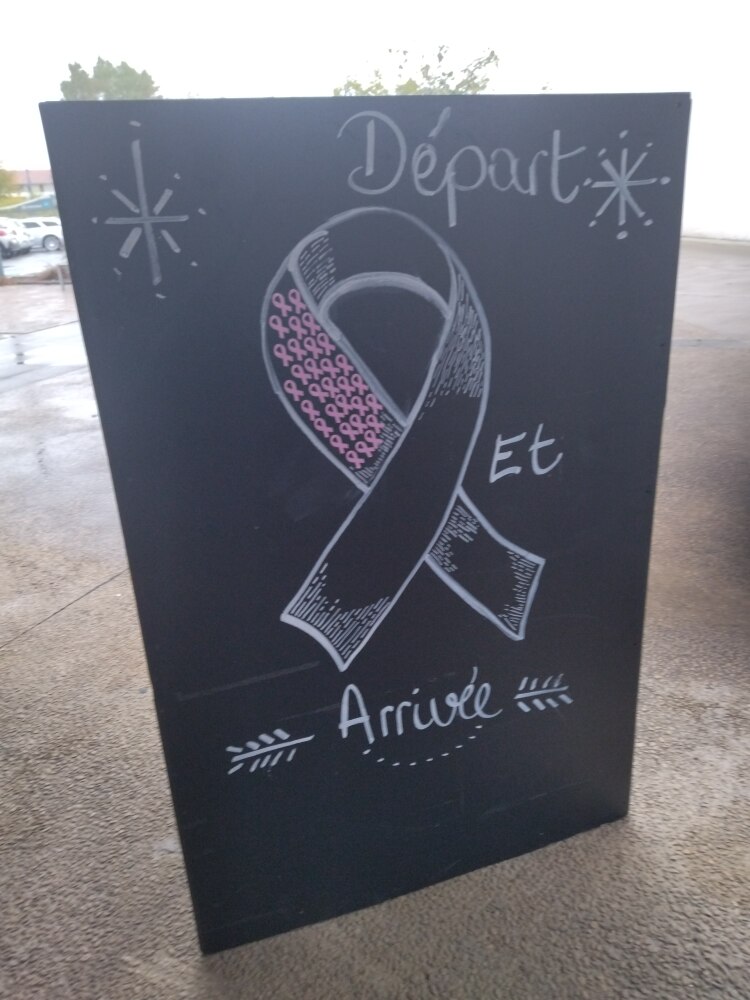 Départ
Et
Arrivée